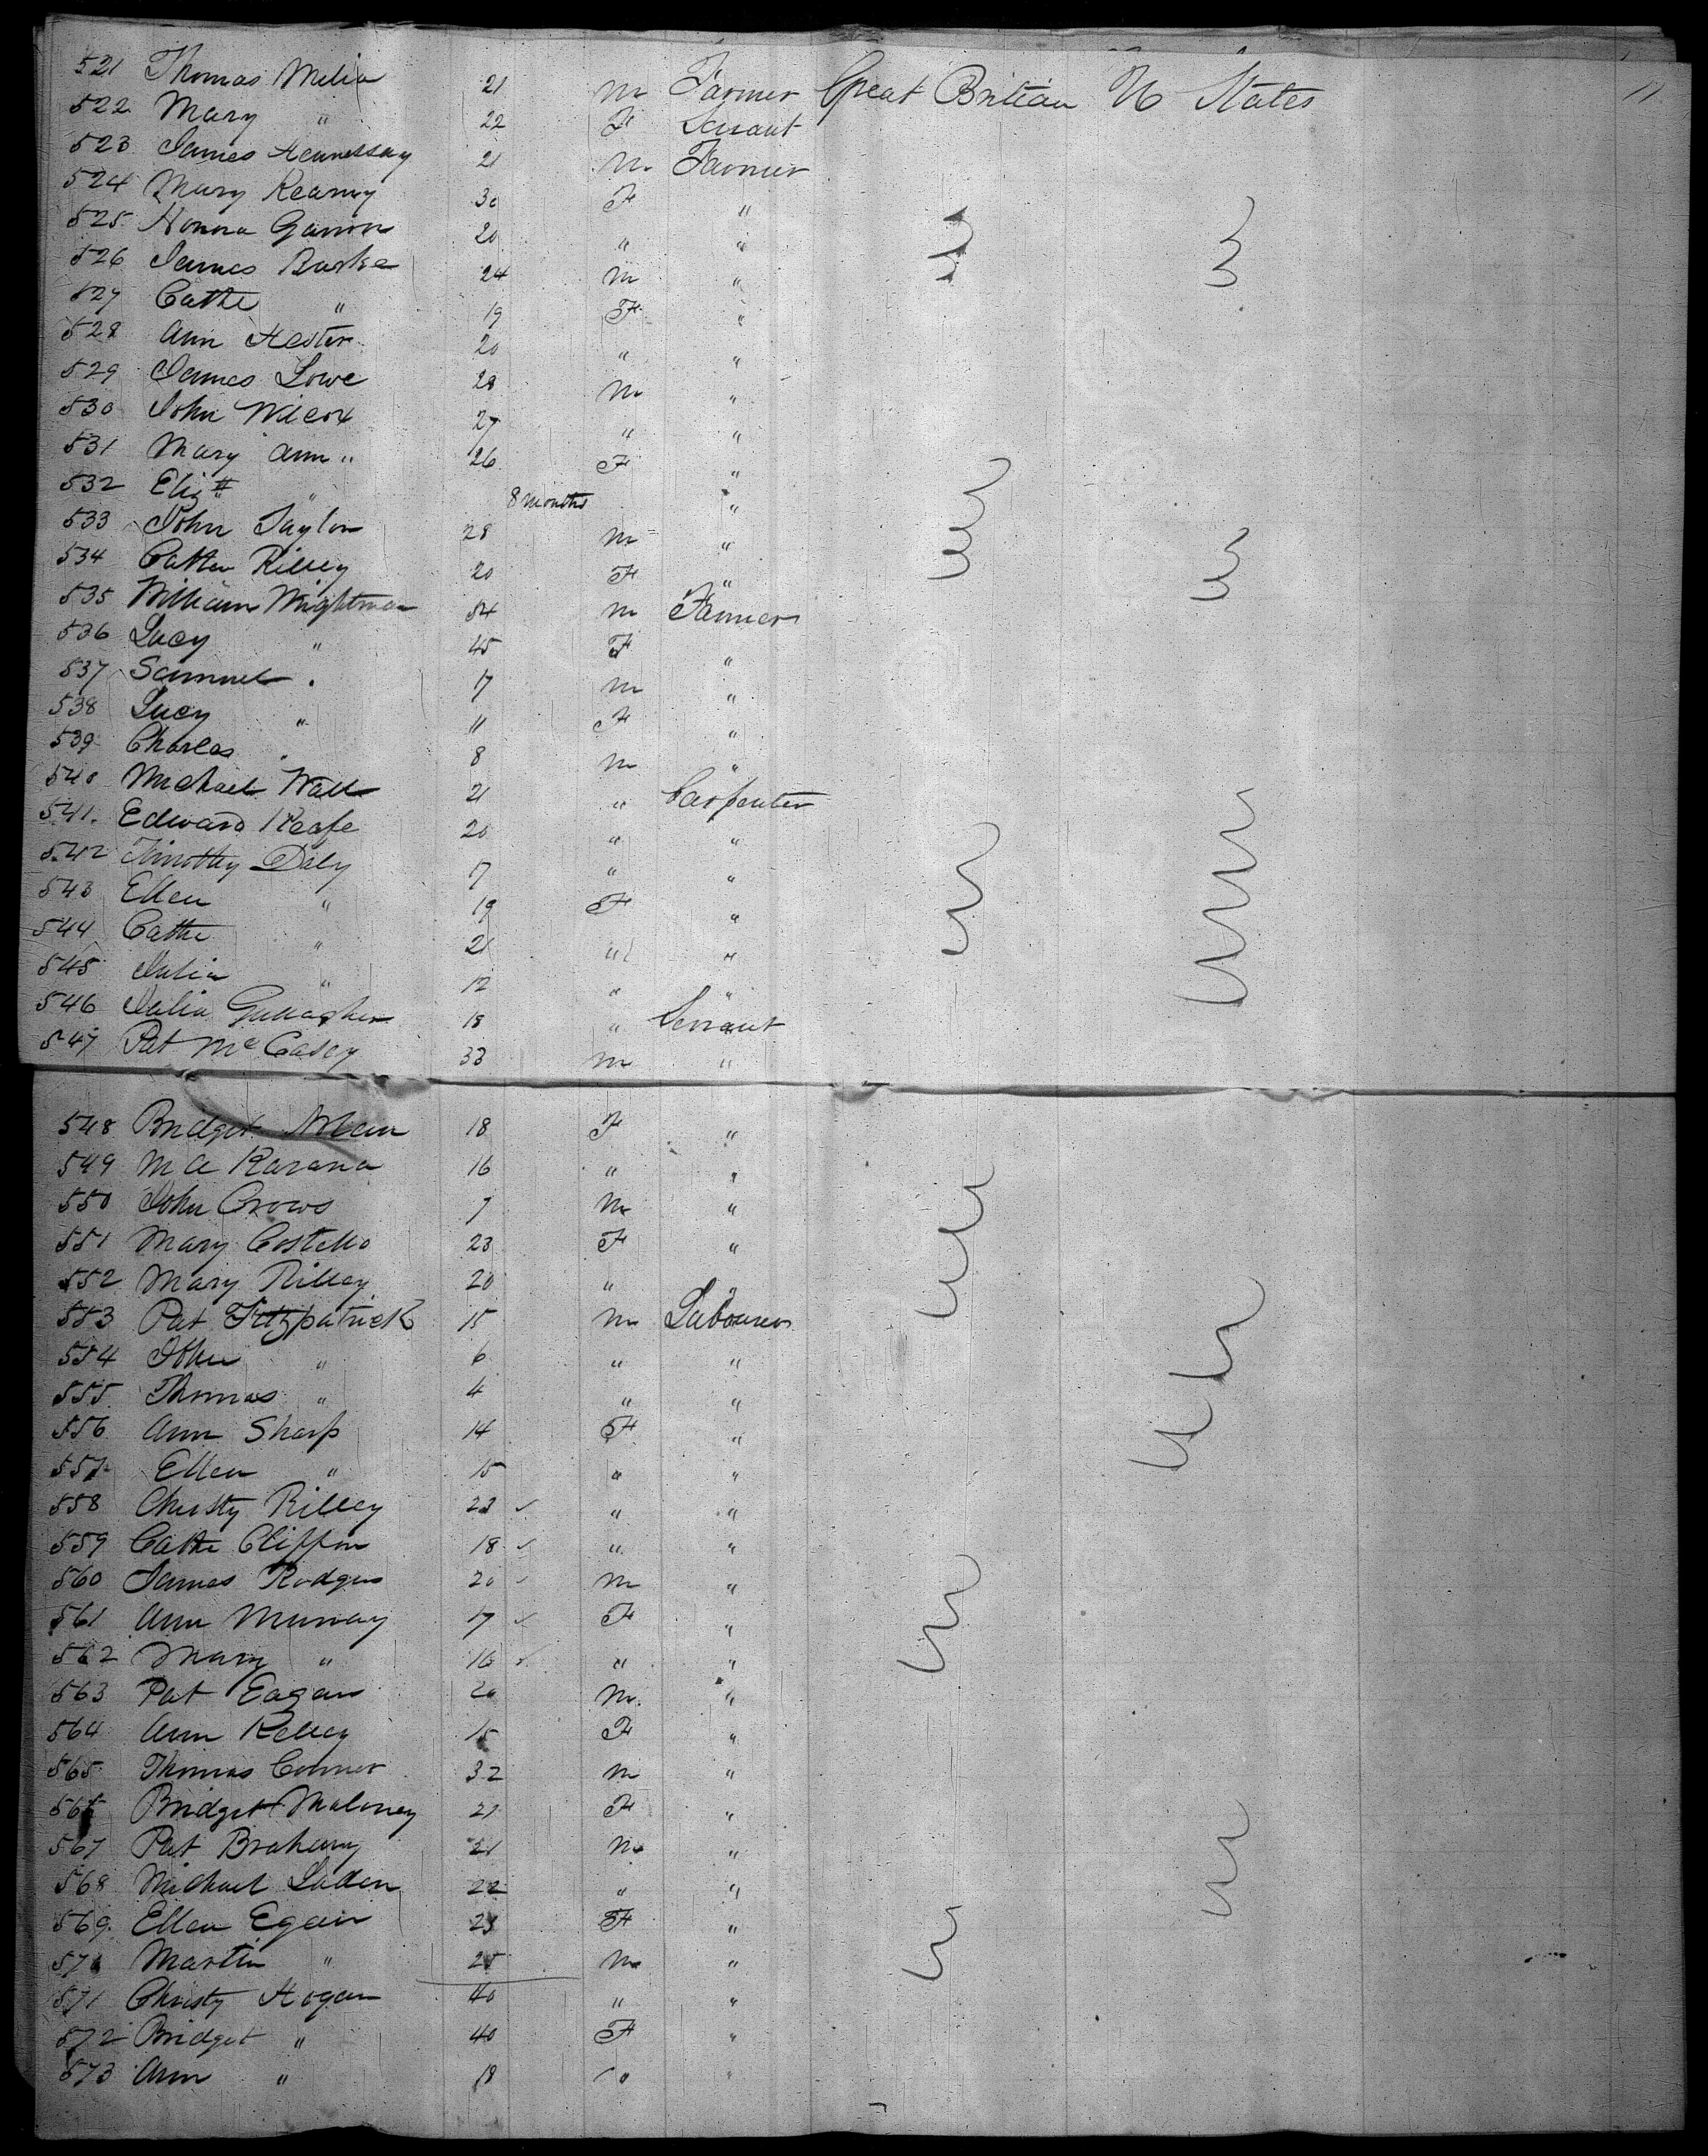 521 Thomas Melia 21 m Farmer Great Britian U States 11
522 Mary " 22 F Servant
523 James Hennessay 21 m Farmer
524 Mary Kearney 30 F "
525 Honora Gannon 20 " "
526 James Burke 24 m "
527 Cathe " 19 F "
528 Ann Hester 20 " "
529 James Lowe 28 m "
530 John Wilcox 27 " "
531 Mary Ann " 26 F "
532 Elizth " 8 months " "
533 John Taylor 28 m "
534 Cathe Rilley 20 F "
535 William Wightman 54 m Farmer
536 Lucy " 45 F "
537 Samuel " 17 m "
538 Lucy " 11 F "
539 Charles " 8 m "
540 Michael Wall 21 " Carpenter
541 Edward Keafe 20 " "
542 Timothy Daly 17 " "
543 Ellen " 19 F "
544 Cathe " 21 " "
545 Julia " 12 " "
546 Julia Gallagher 18 " Servant
547 Pat McCasey 33 m "
548 Bridget 18 F "
549 M A Karana 16 " "
550 John Crows 7 m "
551 Mary Costello 23 F "
552 Mary Rilley 20 " "
553 Pat Fitzpatrick 15 m Labourer
554 John " 6 " "
555 Thomas " 4 " "
556 Ann Sharp 14 F "
557 Ellen " 15 " "
558 Christy Rilley 23 " "
559 Cathe Cliffon 18 " "
560 James Rodgers 20 m "
561 Ann Murray 17 F "
562 Mary " 16 " "
563 Pat Eagan 20 m "
564 Ann Kelley 15 F "
565 Thomas Connor 32 m "
566 Bridget Maloney 21 F "
567 Pat Brahany 21 m "
568 Michael Laden 22 " "
569 Ellen Egan 23 F "
570 Martin " 25 m "
571 Christy Hogan 40 " "
572 Bridget " 40 F "
573 Ann " 18 " "